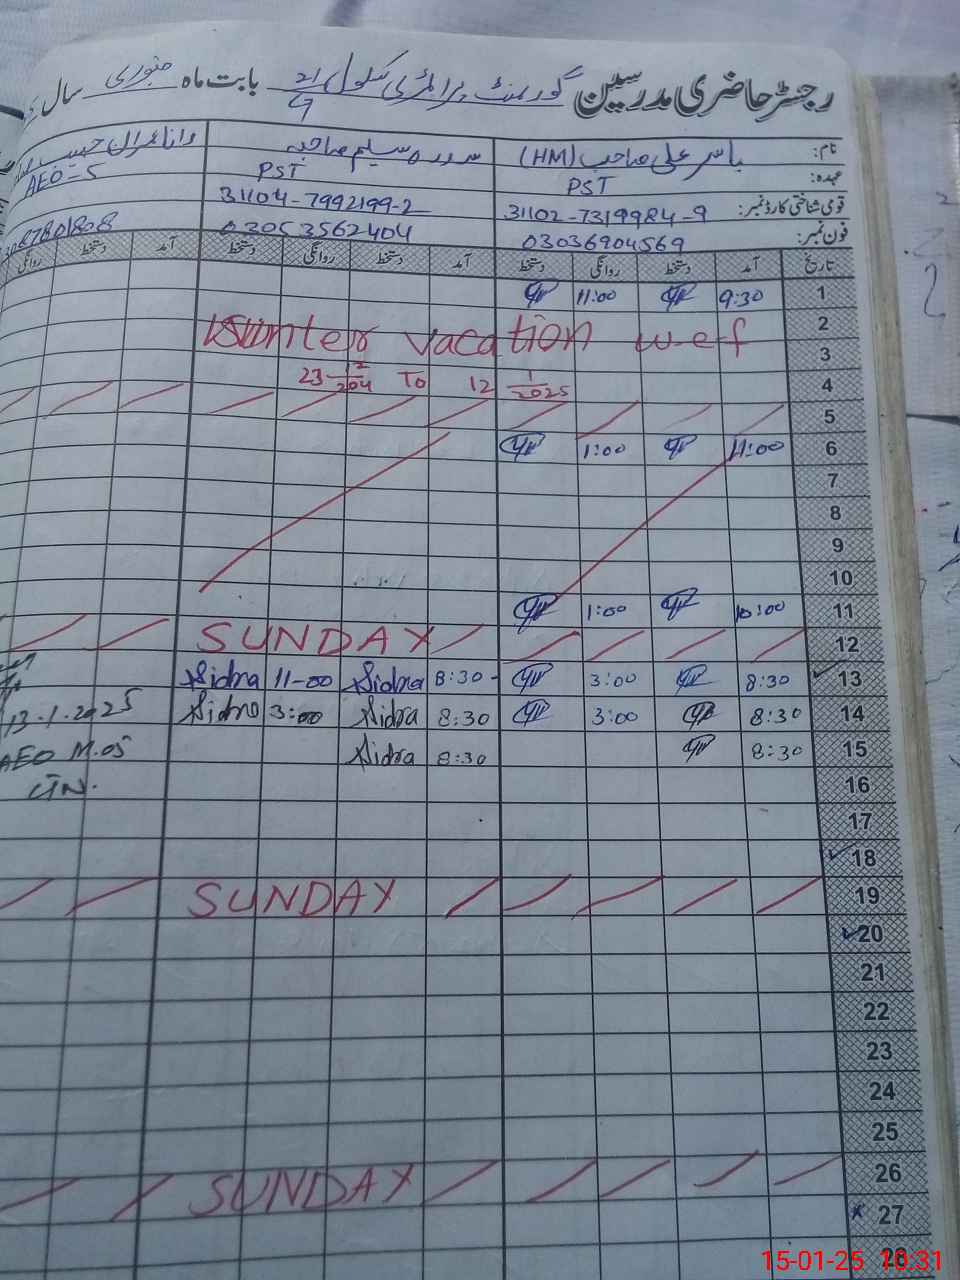 رجسٹر حاضری مدرسین گورنمنٹ پرائمری سکول 21/9 بابت ماہ جنوری سال
نام: یاسر علی صاحب (HM) سدرہ سلیم صاحبہ رانا عمران حبیب
عہدہ: PST PST AEO-5
قومی شناختی کارڈ نمبر: 31102-7319984-9 31104-7992199-2
فون نمبر: 03036904569 03053562404
تاریخ آمد دستخط روانگی دستخط آمد دستخط روانگی دستخط آمد دستخط روانگی
1 9:30 11:00
2 Winter vacation w.e.f
3
4 23-12 To 12 1/2025
5
6 11:00 1:00
7
8
9
10
11 10:00 1:00
12 SUNDAY
13 8:30 3:00 8:30 Sidra 11-00 Sidra
14 8:30 3:00 8:30 Sidra 3:00 Sidra 13.1.2025
15 8:30 8:30 Sidra AEO M.05
16 CTN.
17
18
19 SUNDAY
20
21
22
23
24
25
26 SUNDAY
27
28
15-01-25 10:31